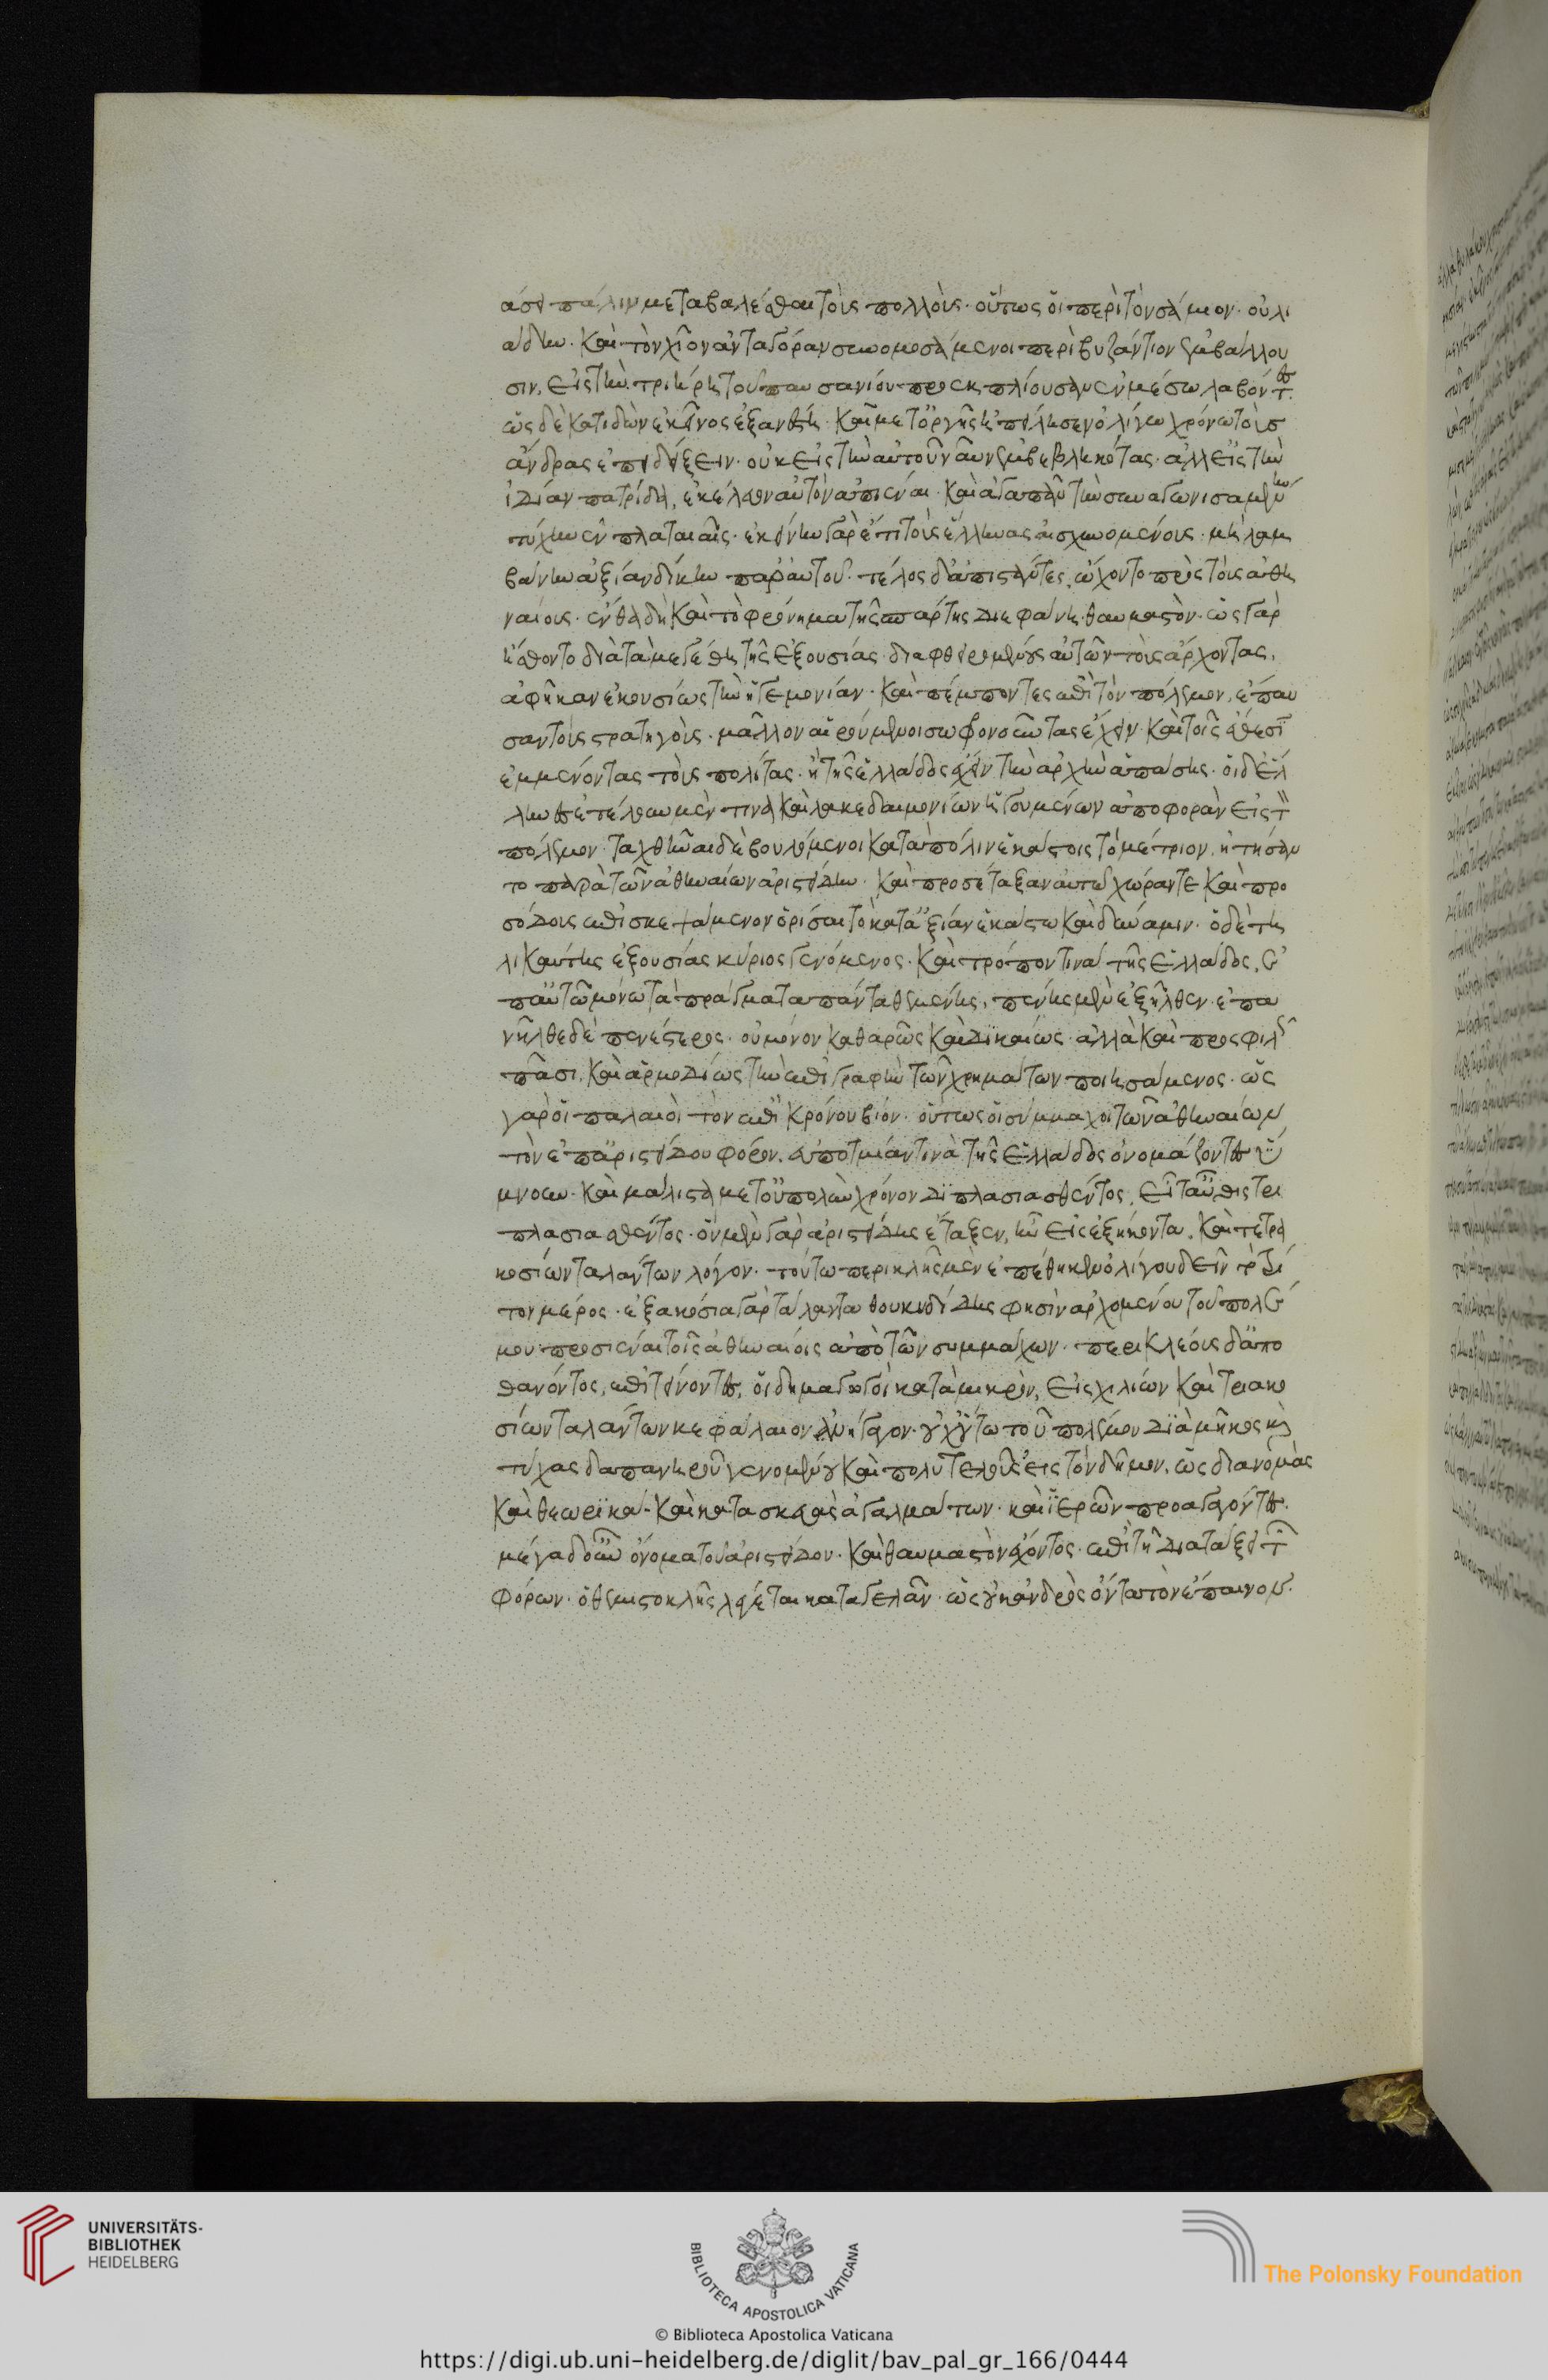 άσει πάλιν μεταβαλέσθαι τοὺς πολλοὺς· οὕτως οἱ περὶ τὸν σάμιον οὐλι
άδην· καὶ τὸν χῖον ἀνταγόραν συνομοσάμενοι περὶ βυζάντιον ἐμβάλλου
σιν, εἰς τὴν τριήρη τοῦ παυσανίου προεκπλέουσαν ἐν μέσω λαβόντες.
ὡς δὲ κατιδὼν ἐκεῖνος ἐξανέστη· καὶ μετ' ὀργῆς ἠπείλησεν ὀλίγω χρόνω τοὺς
ἄνδρας ἐπιδείξειν· οὐκ εἰς τὴν αὐτοῦ ναῦν ἐμβεβληκότας· ἀλλ' εἰς τὴν
ἰδίαν πατρίδα, ἐκέλευον αὐτὸν ἀπιέναι· καὶ ἀγαπᾶν τὴν συναγωνισαμένην
τύχην ἐν πλαταιαῖς· ἐκείνην γὰρ ἔτι τοὺς ἕλληνας αἰσχυνομένους· μὴ λαμ
βάνειν ἀξίαν δίκην παρ' αὐτοῦ· τέλος δ' ἀποστάντες, ὤχοντο πρὸς τοὺς ἀθη
ναίους· ἔνθα δὴ καὶ τὸ φρόνημα τῆς σπάρτης διεφάνη· θαυμαστὸν· ὡς γὰρ
ᾔσθοντο διὰ τὰ μεγέθη τῆς ἐξουσίας διαφθειρομένους αὐτῶν τοὺς ἄρχοντας,
ἀφῆκαν ἑκουσίως τὴν ἡγεμονίαν· καὶ πέμποντες ἐπὶ τὸν πόλεμον, ἐπαύ
σαντο στρατηγοὺς· μᾶλλον αἱρούμενοι σωφρονοῦντας ἔχειν· καὶ τοῖς ἔθεσιν
ἐμμένοντας τοὺς πολίτας· ἢ τῆς ἑλλάδος ἔχειν τὴν ἀρχὴν ἁπάσης· οἱ δ' ἕλ
ληνες ἐτέλουν μέν τινα καὶ λακεδαιμονίων ἡγουμένων ἀποφορὰν εἰς τὸν
πόλεμον· ταχθῆναι δὲ βουλόμενοι κατὰ πόλιν ἑκάστοις τὸ μέτριον, ᾐτήσαν
το παρὰ τῶν ἀθηναίων ἀριστείδην· καὶ προσέταξαν αὐτῶ χώραν τε καὶ προ
σόδους ἐπισκεψάμενον ὁρίσαι τὸ κατ' ἀξίαν ἑκάστω καὶ δύναμιν· ὁ δὲ τη
λικαύτης ἐξουσίας κύριος γενόμενος· καὶ τρόπον τινὰ τῆς ἑλλάδος, ἐ
π' αὐτῶ μόνω τὰ πράγματα πάντα θεμένης, πένης μὲν ἐξῆλθεν· ἐπα
νῆλθε δὲ πενέστερος· οὐ μόνον καθαρῶς καὶ δικαίως· ἀλλὰ καὶ προσφιλῶς
πᾶσι. καὶ ἁρμοδίως τὴν ἐπιγραφὴν τῶν χρημάτων ποιησάμενος· ὡς
γὰρ οἱ παλαιοὶ τὸν ἐπὶ κρόνου βίον· οὕτως οἱ σύμμαχοι τῶν ἀθηναίων
τὸν ἐπ' ἀριστείδου φόρον, εὐποτμίαν τινὰ τῆς ἑλλάδος ὀνομάζοντες ὕ
μνουν· καὶ μάλιστα μετ' οὐ πολὺν χρόνον διπλασιασθέντος, εἶτ' αὖθις τρι
πλασιασθέντος· ὃν μὲν γὰρ ἀριστείδης ἔταξεν, ἦν εἰς ἑξήκοντα, καὶ τετρα
κοσίων ταλάντων λόγον· τούτω περικλῆς μὲν ἐπέθηκεν ὀλίγου δεῖν τὸ τρί
τον μέρος· ἑξακόσια γὰρ τάλαντα θουκυδίδης φησὶν ἀρχομένου τοῦ πολέ
μου προσιέναι τοῖς ἀθηναίοις ἀπὸ τῶν συμμάχων· περικλέους δ' ἀπο
θανόντος, ἐπιτείνοντες, οἱ δημαγωγοὶ κατὰ μικρὸν, εἰς χιλίων καὶ τριακο
σίων ταλάντων κεφάλαιον ἀνήγαγον· οὐχ οὕτω τοῦ πολέμου διὰ μῆκος καὶ
τύχας δαπανηροῦ γενομένου καὶ πολυτελοῦς εἰς τὸν δῆμον, ὡς διανομὰς
καὶ θεωρϊκὰ· καὶ κατασκευὰς ἀγαλμάτων· καὶ ἱερῶν προαγαγόντες.
μέγα δ' οὖν ὄνομα τοῦ ἀριστείδου· καὶ θαυμαστὸν ἔχοντος· ἐπὶ τῆ διατάξει τῶν
φόρων· ὁ θεμιστοκλῆς λέγεται καταγελᾶν· ὡς οὐκ ἀνδρὸς ὄντα τὸν ἔπαινον·
UNIVERSITÄTS-
BIBLIOTHEK
HEIDELBERG
BIBLIOTECA APOSTOLICA VATICANA
The Polonsky Foundation
© Biblioteca Apostolica Vaticana
https://digi.ub.uni-heidelberg.de/diglit/bav_pal_gr_166/0444